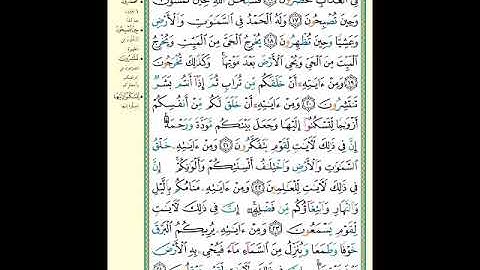 فِي ٱلۡعَذَابِ مُحۡضَرُونَ ١٦ فَسُبۡحَٰنَ ٱللَّهِ حِينَ تُمۡسُونَ
وَحِينَ تُصۡبِحُونَ ١٧ وَلَهُ ٱلۡحَمۡدُ فِي ٱلسَّمَٰوَٰتِ وَٱلۡأَرۡضِ
وَعَشِيّٗا وَحِينَ تُظۡهِرُونَ ١٨ يُخۡرِجُ ٱلۡحَيَّ مِنَ ٱلۡمَيِّتِ وَيُخۡرِجُ
ٱلۡمَيِّتَ مِنَ ٱلۡحَيِّ وَيُحۡيِ ٱلۡأَرۡضَ بَعۡدَ مَوۡتِهَاۚ وَكَذَٰلِكَ تُخۡرَجُونَ
١٩ وَمِنۡ ءَايَٰتِهِۦٓ أَنۡ خَلَقَكُم مِّن تُرَابٖ ثُمَّ إِذَآ أَنتُم بَشَرٞ
تَنتَشِرُونَ ٢٠ وَمِنۡ ءَايَٰتِهِۦٓ أَنۡ خَلَقَ لَكُم مِّنۡ أَنفُسِكُمۡ
أَزۡوَٰجٗا لِّتَسۡكُنُوٓاْ إِلَيۡهَا وَجَعَلَ بَيۡنَكُم مَّوَدَّةٗ وَرَحۡمَةًۚ
إِنَّ فِي ذَٰلِكَ لَأٓيَٰتٖ لِّقَوۡمٖ يَتَفَكَّرُونَ ٢١ وَمِنۡ ءَايَٰتِهِۦ خَلۡقُ
ٱلسَّمَٰوَٰتِ وَٱلۡأَرۡضِ وَٱخۡتِلَٰفُ أَلۡسِنَتِكُمۡ وَأَلۡوَٰنِكُمۡۚ إِنَّ
فِي ذَٰلِكَ لَأٓيَٰتٖ لِّلۡعَٰلِمِينَ ٢٢ وَمِنۡ ءَايَٰتِهِۦ مَنَامُكُم بِٱلَّيۡلِ
وَٱلنَّهَارِ وَٱبۡتِغَآؤُكُم مِّن فَضۡلِهِۦٓۚ إِنَّ فِي ذَٰلِكَ لَأٓيَٰتٖ
لِّقَوۡمٖ يَسۡمَعُونَ ٢٣ وَمِنۡ ءَايَٰتِهِۦ يُرِيكُمُ ٱلۡبَرۡقَ
خَوۡفٗا وَطَمَعٗا وَيُنَزِّلُ مِنَ ٱلسَّمَآءِ مَآءٗ فَيُحۡيِۦ بِهِ ٱلۡأَرۡضَ